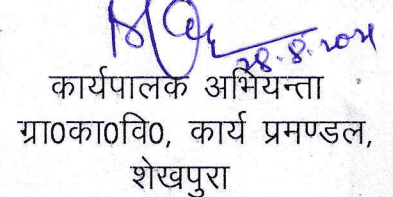 28.8.2024
कार्यपालक अभियन्ता
ग्रा0का0वि0, कार्य प्रमण्डल,
शेखपुरा